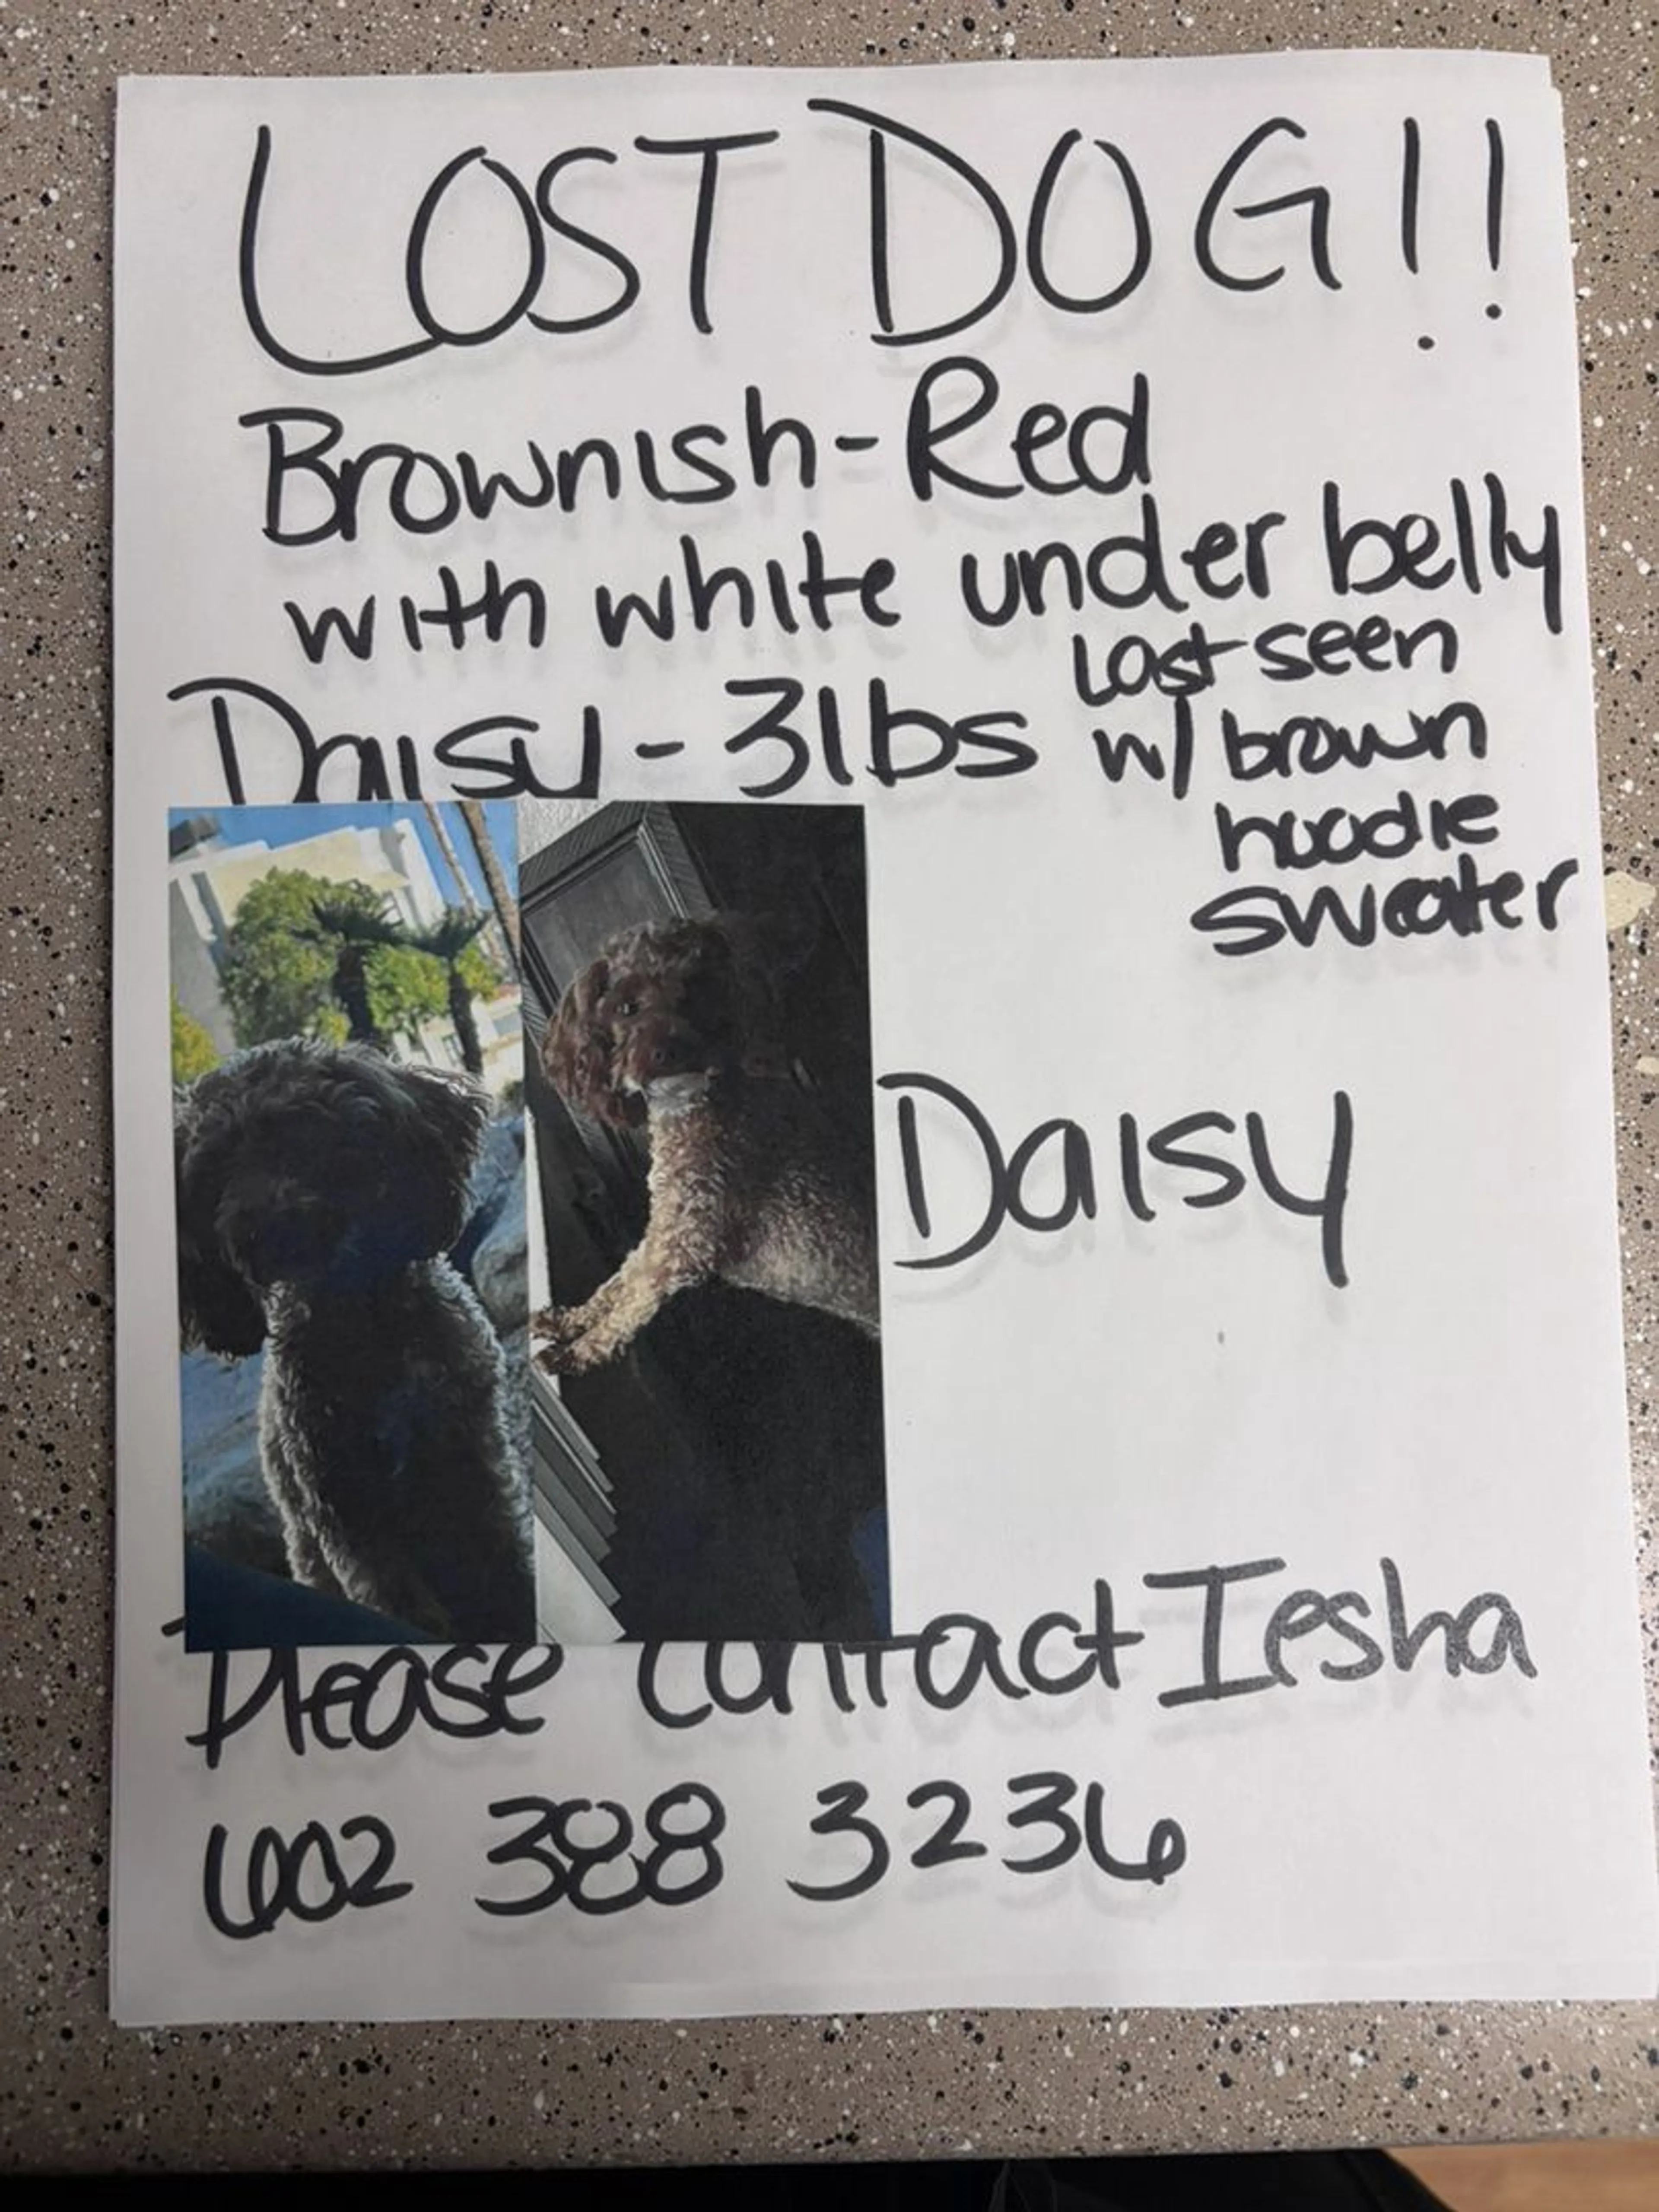 LOST DOG!!
Brownish-Red
with white under belly
Daisy - 3lbs
Last seen
w/ brown
hoodie
sweater
Daisy
Please contact Iesha
602 388 3236